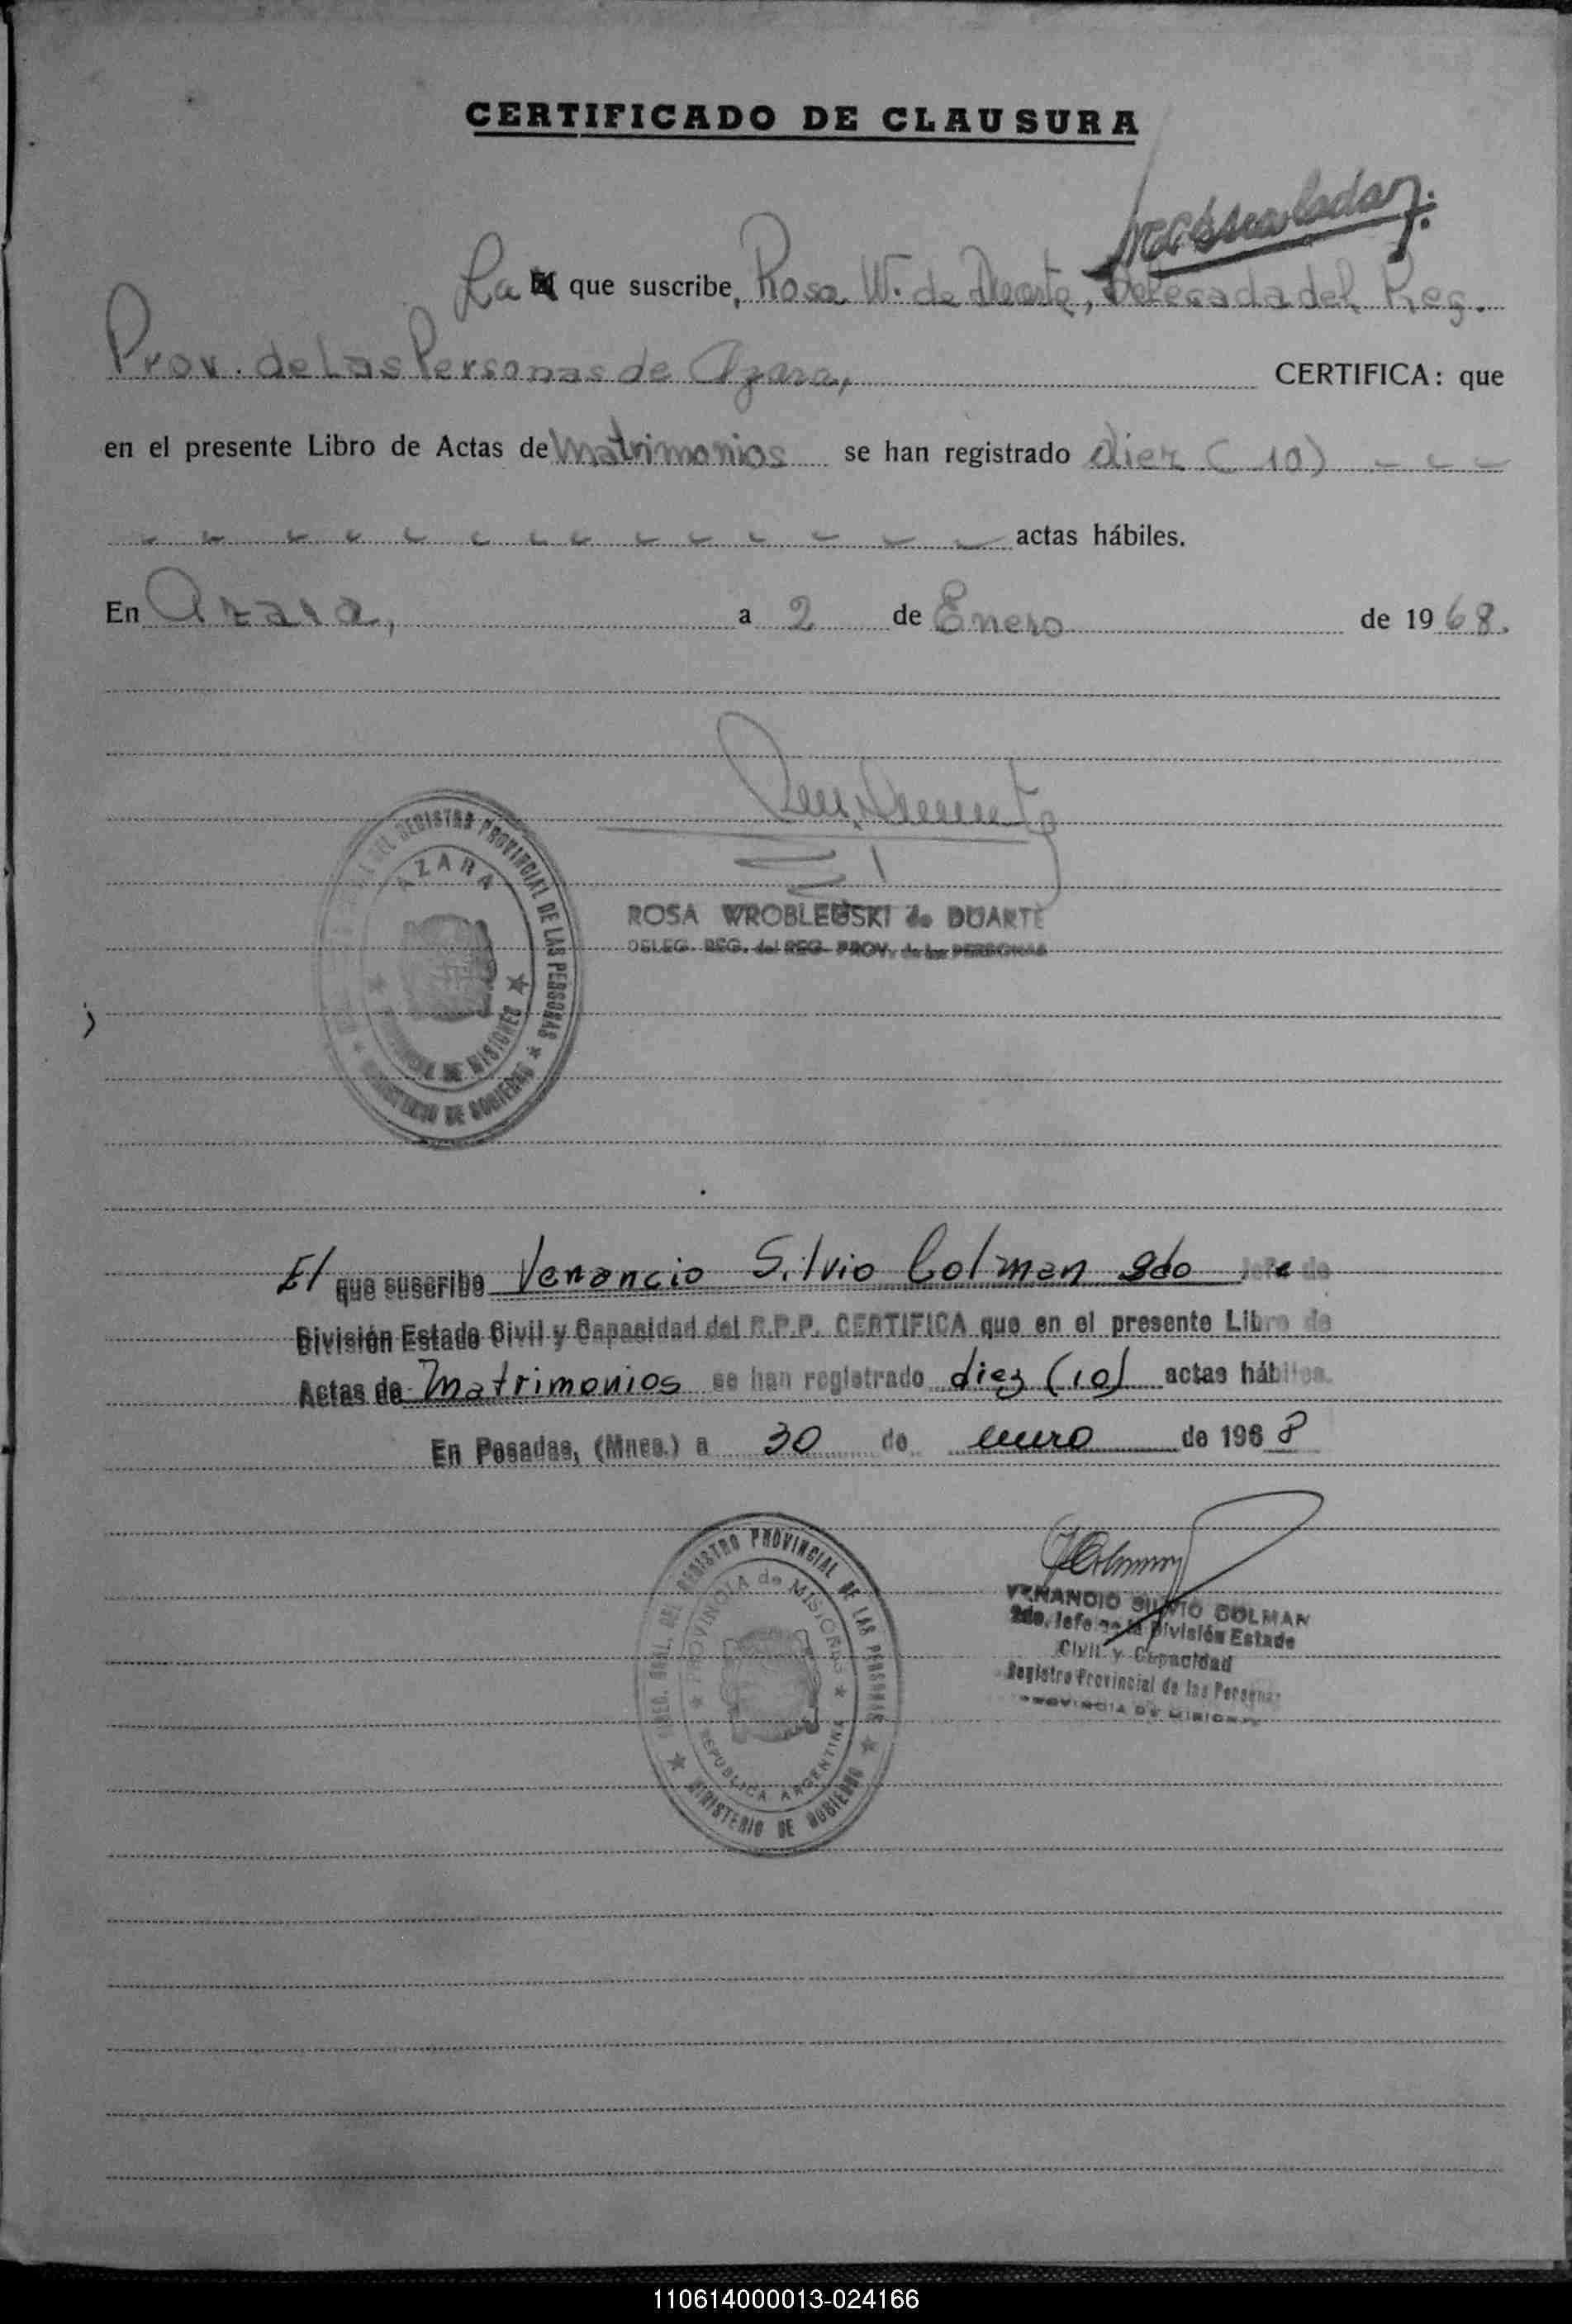 CERTIFICADO DE CLAUSURA
La que suscribe, Rosa W. de Duarte, Delegada del Reg.
Prov. de Las Personas de Azara, CERTIFICA: que
en el presente Libro de Actas de Matrimonios se han registrado diez (10) - - -
- - - - - - - - - - - - - - actas hábiles.
En Azara, a 2 de Enero de 1968.
DEL REGISTRO PROVINCIAL DE LAS PERSONAS
AZARA
PROVINCIA DE MISIONES
MINISTERIO DE GOBIERNO
ROSA WROBLEUSKI de DUARTE
DELEG. REG. del REG. PROV. de las PERSONAS
El que suscribe Venancio Silvio Colman 2do Jefe de
División Estado Civil y Capacidad del R.P.P. CERTIFICA que en el presente Libro de
Actas de Matrimonios se han registrado diez (10) actas hábiles.
En Posadas, (Mnes.) a 30 de enero de 1968
DEL REGISTRO PROVINCIAL DE LAS PERSONAS
PROVINCIA de MISIONES
REPUBLICA ARGENTINA
MINISTERIO DE GOBIERNO
VENANCIO SILVIO COLMAN
2do. Jefe de la División Estado
Civil y Capacidad
Registro Provincial de las Personas
PROVINCIA DE MISIONES
110614000013-024166